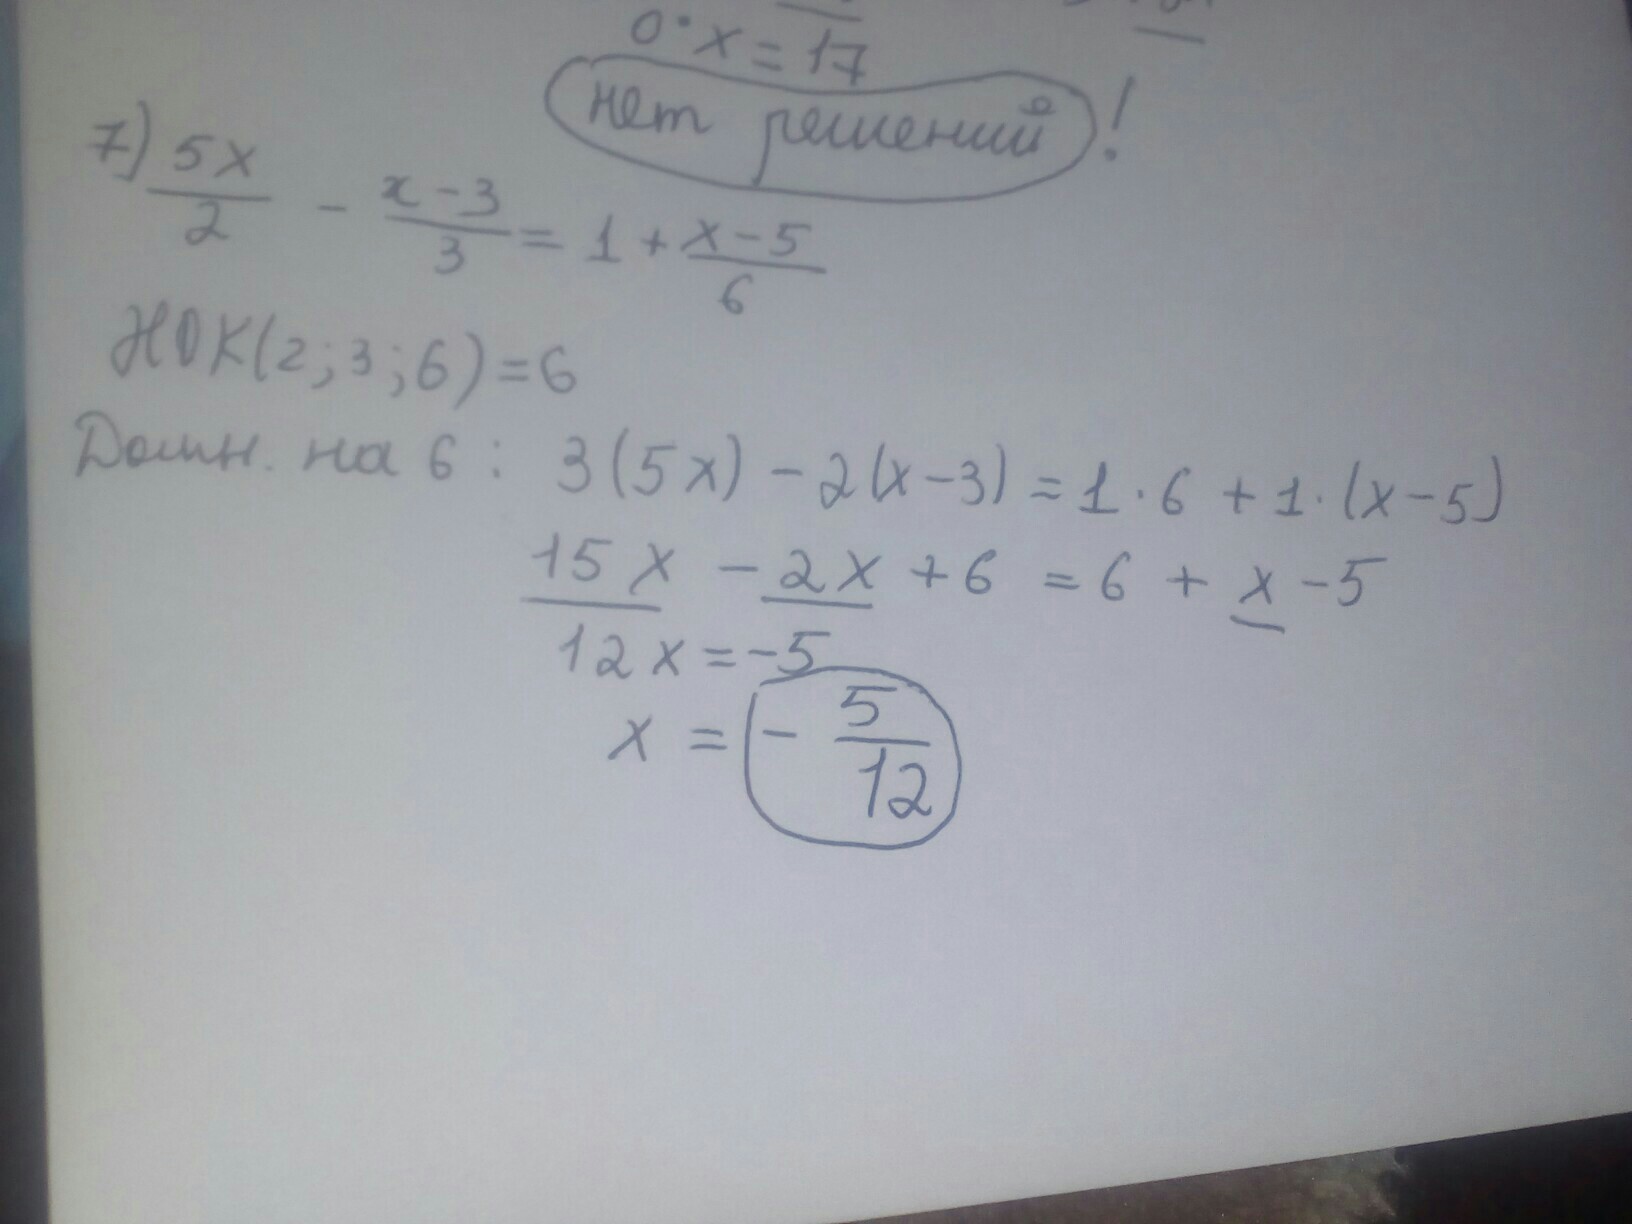 0·x = 17
нет решений!
7) 5x/2 - x-3/3 = 1 + x-5/6
НОК(2;3;6)=6
Домн. на 6: 3(5x) - 2(x-3) = 1·6 + 1·(x-5)
15x - 2x + 6 = 6 + x - 5
12x = -5
x = - 5/12